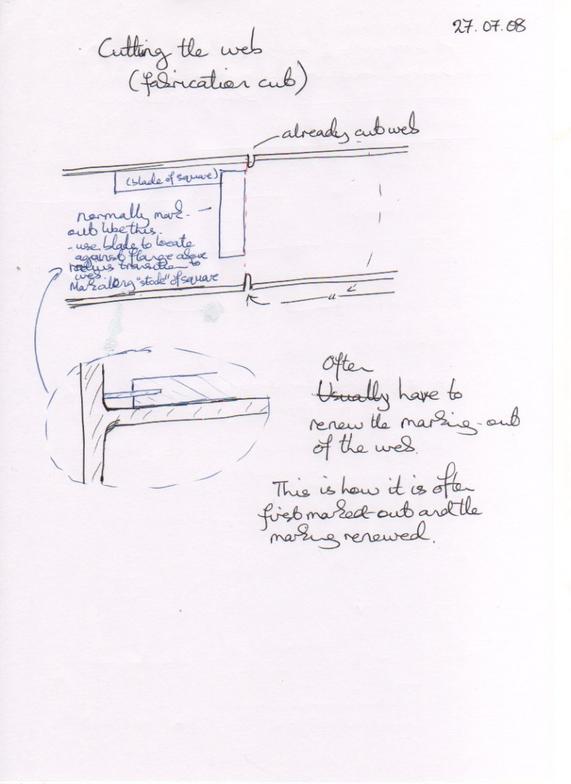 27.07.08
Cutting the web
(fabrication cut)
already cut web
(blade of square)
normally mark-
out like this.
- use blade to locate
against flange above
radius transition to
web.
Mark along "stock" of square
"
Often
Usually have to
renew the marking-out
of the web.
This is how it is often
first marked-out and the
marking renewed.